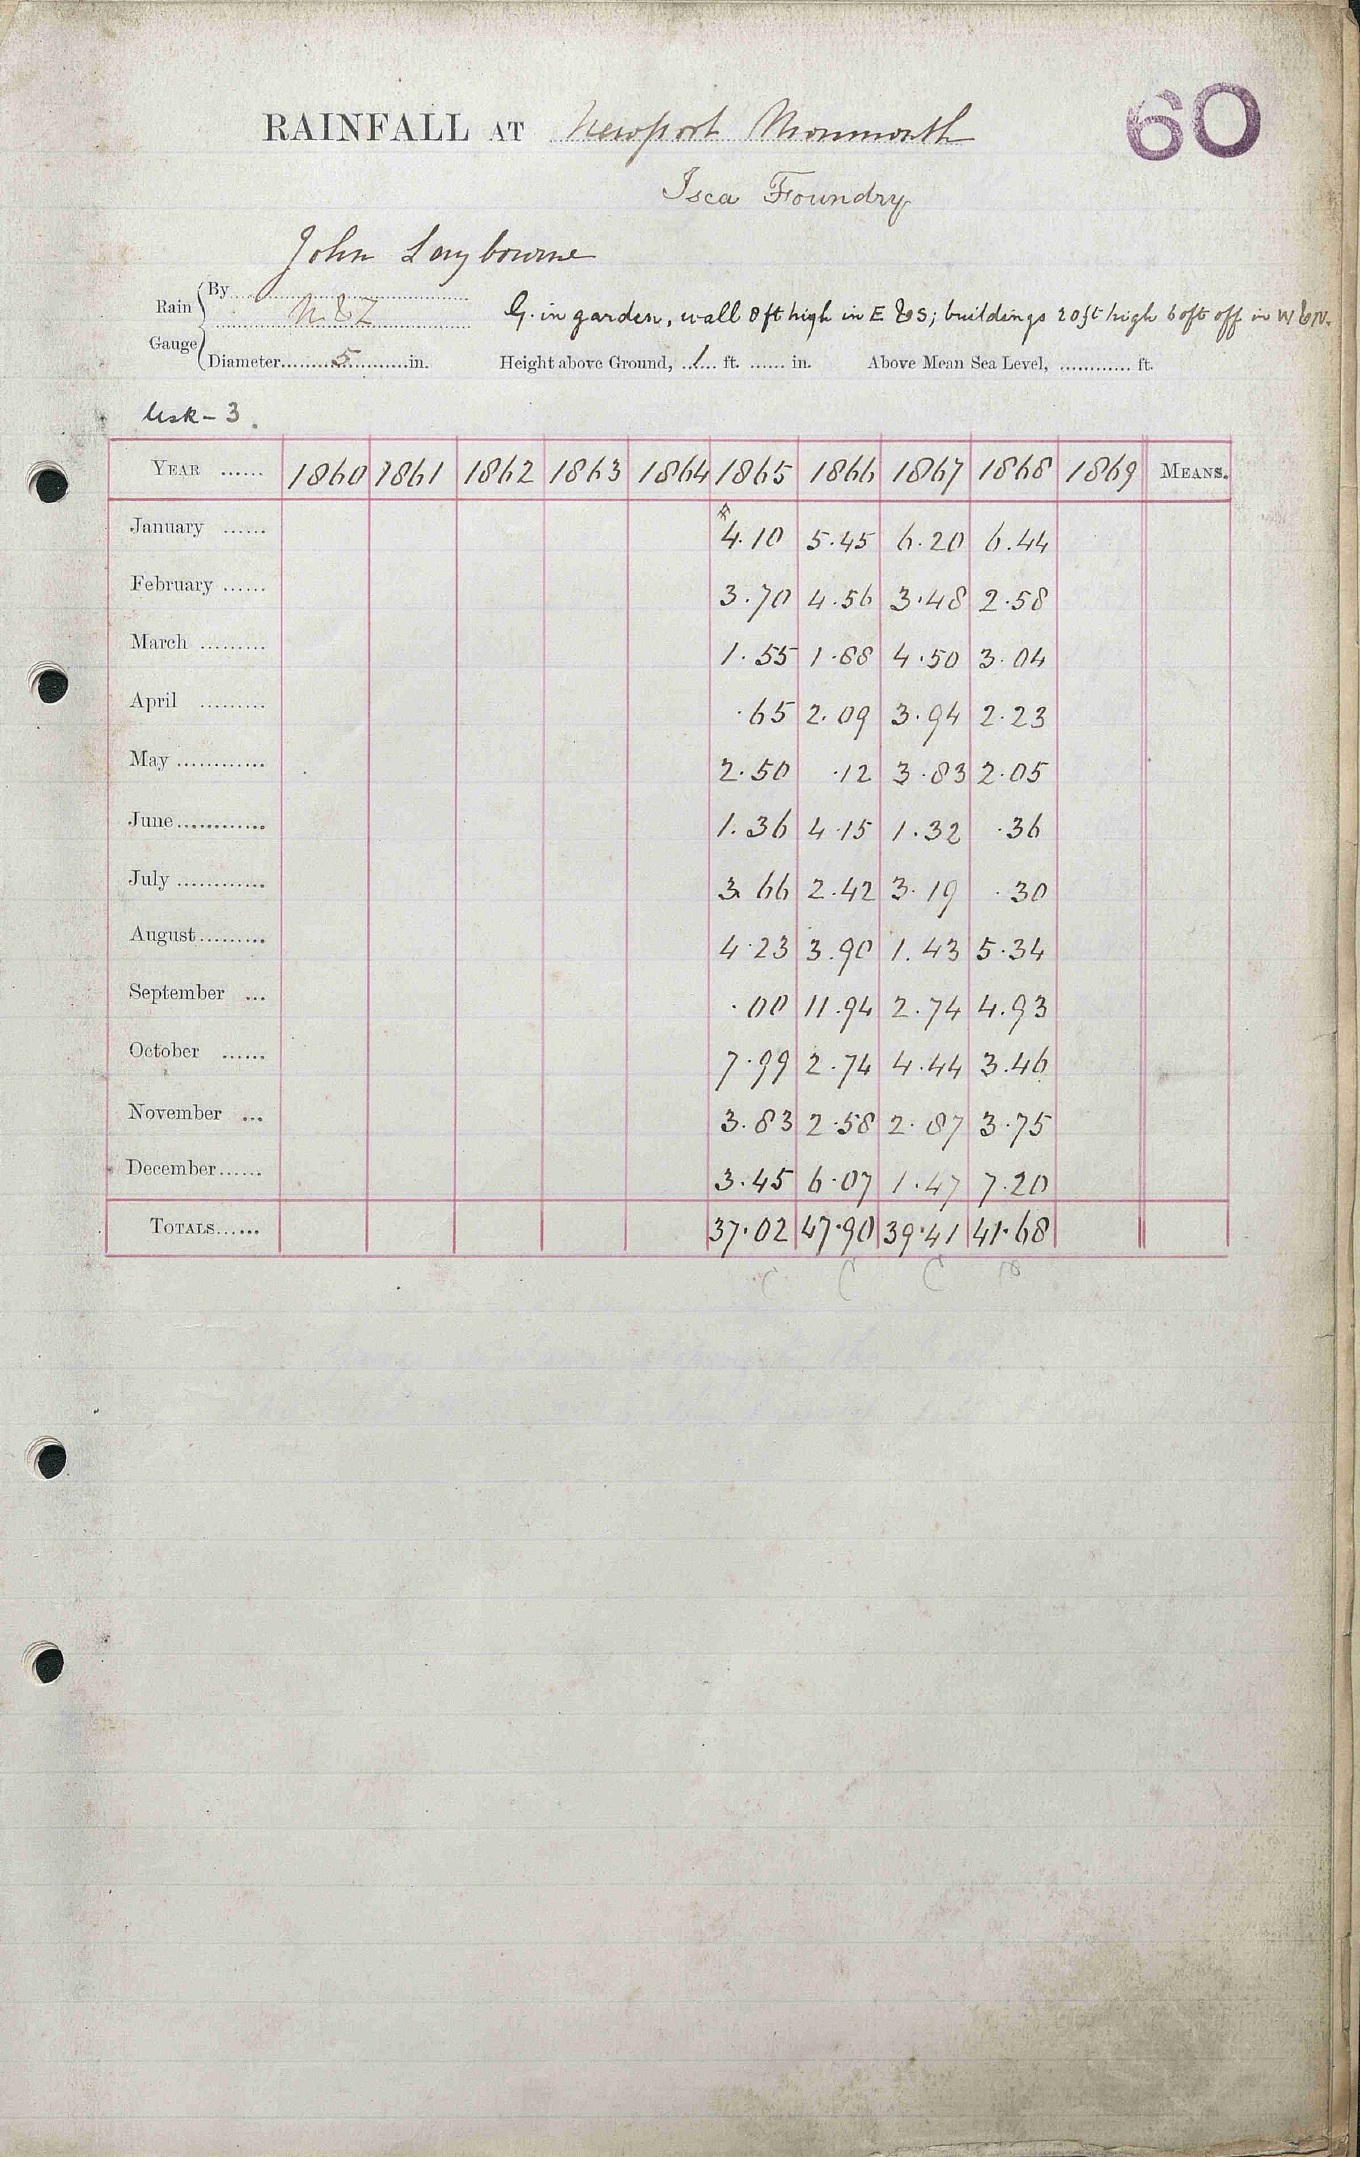 60
RAINFALL AT Newport Monmouth
Isca Foundry
John Laybourne
Rain Gauge { By N & Z
G. in garden, wall 8 ft high in E & S; buildings 20 ft high 60 ft off in W & N.
Diameter 5 in. Height above Ground, 1 ft. in. Above Mean Sea Level, ft.
Usk - 3.
YEAR 1860 1861 1862 1863 1864 1865 1866 1867 1868 1869 MEANS.
January 4.10 5.45 6.20 6.44
February 3.70 4.56 3.48 2.58
March 1.55 1.88 4.50 3.04
April .65 2.09 3.94 2.23
May 2.50 .12 3.83 2.05
June 1.36 4.15 1.32 .36
July 3.66 2.42 3.19 .30
August 4.23 3.90 1.43 5.34
September .00 11.94 2.74 4.93
October 7.99 2.74 4.44 3.46
November 3.83 2.58 2.87 3.75
December 3.45 6.07 1.47 7.20
TOTALS 37.02 47.90 39.41 41.68
C C C